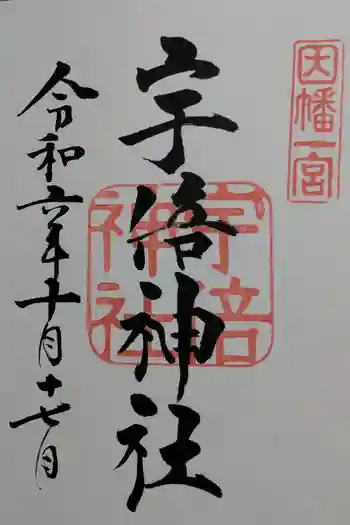 因幡一宮
宇倍神社
宇倍神社
令和六年十月十七日